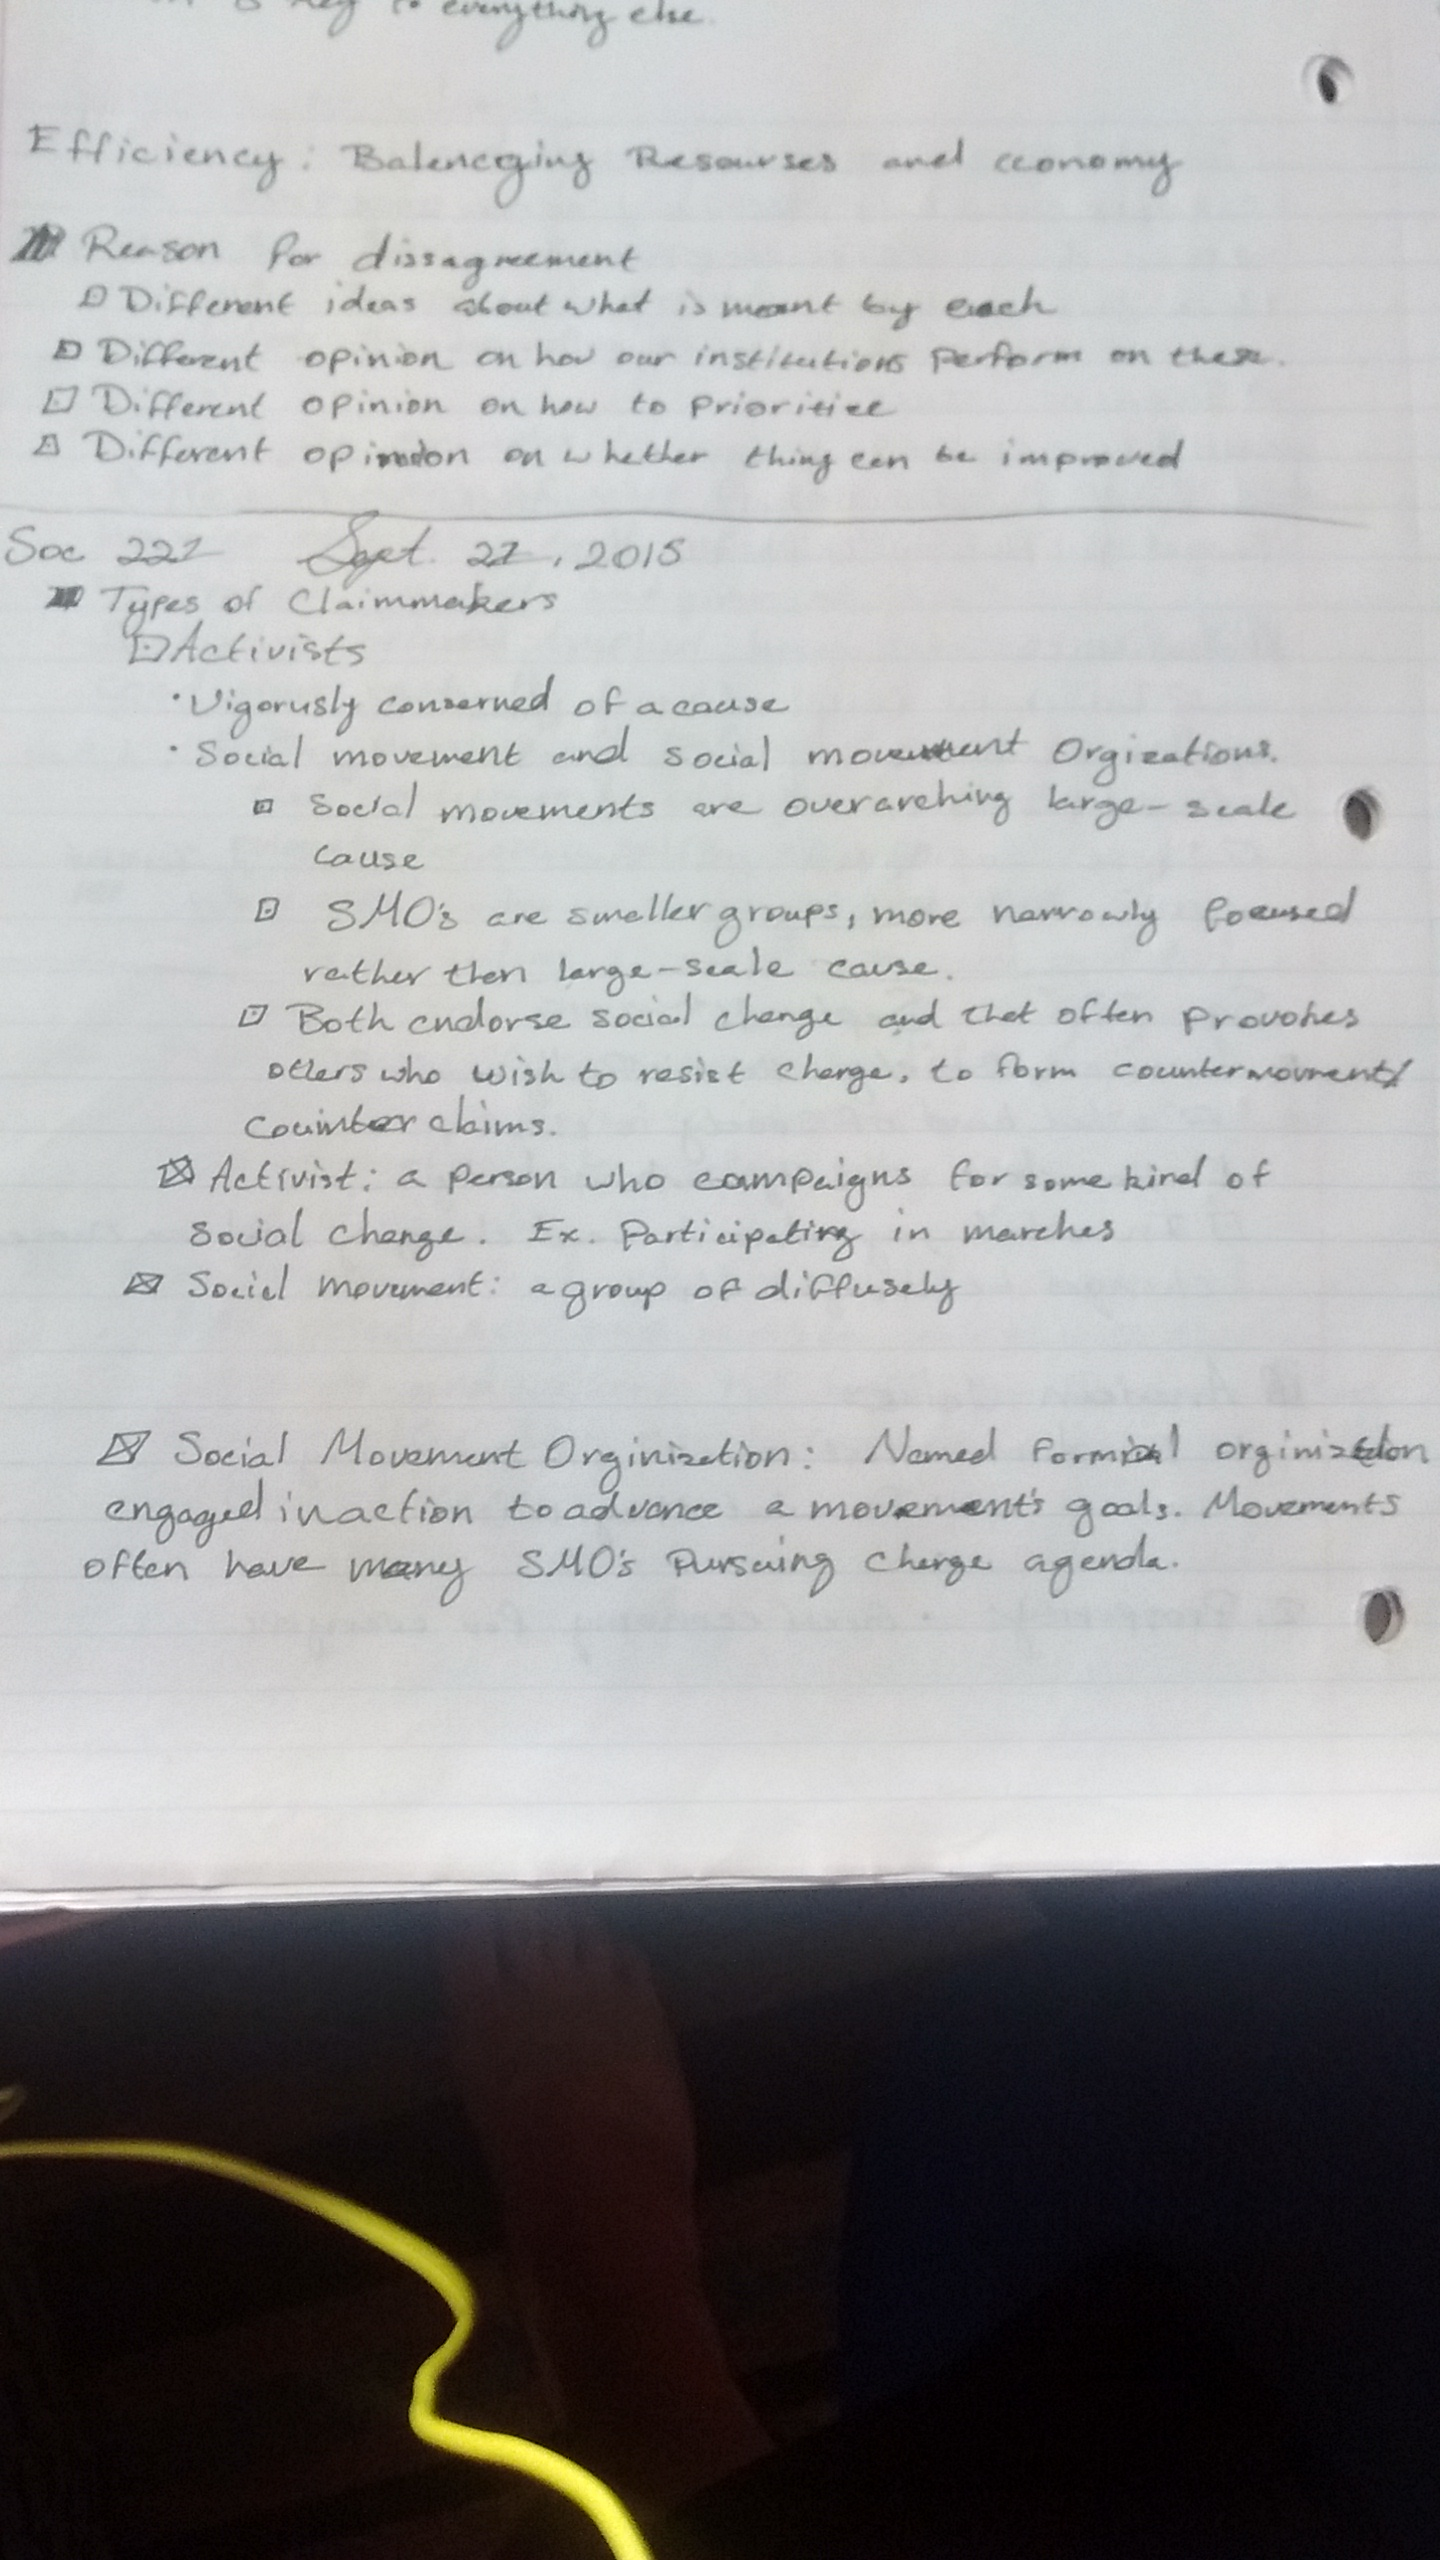 key to everything else.
Efficiency: Balenceging Resourses and economy
Reason for dissagreement
Different ideas about what is meant by each
Different opinion on how our institutions perform on these.
Different opinion on how to prioritize
Different opinion on whether thing can be improved
Soc 221 Sept. 21, 2015
Types of Claimmakers
Activists
· Vigorusly conserned of a cause
· Social movement and social movement Orgizations.
Social movements are overarching large-scale
cause
SMO's are smaller groups, more narrowly focused
rather then large-scale cause.
Both endorse social change and that often provokes
others who wish to resist change, to form countermovment/
counter claims.
Activist: a person who campaigns for some kind of
social change. Ex. Participating in marches
Social movement: a group of diffusely
Social Movement Orginization: Named formal orginization
engaged in action to advance a movement's goals. Movements
often have many SMO's pursuing change agenda.